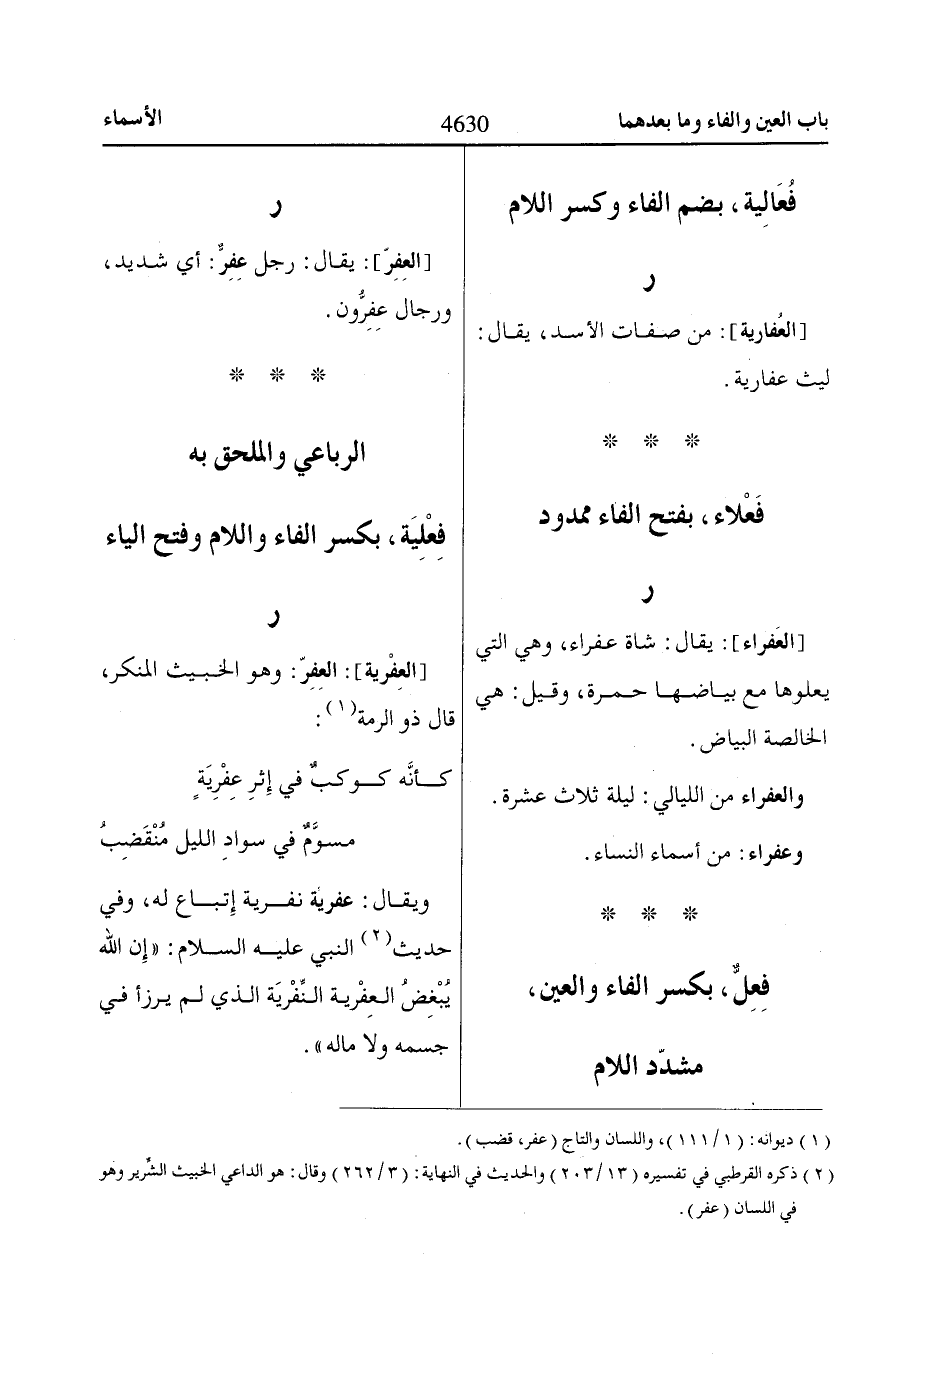 باب العين والفاء وما بعدهما
4630
الأسماء
فُعَالِية، بضم الفاء وكسر اللام
ر
[العُفارية]: من صفات الأسد، يقال:
ليث عفارية.
* * *
فَعْلاء، بفتح الفاء ممدود
ر
[العَفراء]: يقال: شاة عفراء، وهي التي
يعلوها مع بياضها حمرة، وقيل: هي
الخالصة البياض.
والعفراء من الليالي: ليلة ثلاث عشرة.
وعفراء: من أسماء النساء.
* * *
فِعِلٌّ، بكسر الفاء والعين،
مشدّد اللام
ر
[العِفِرّ]: يقال: رجل عِفِرٌّ: أي شديد،
ورجال عِفِرُّون.
* * *
الرباعي والملحق به
فِعْلِيَة، بكسر الفاء واللام وفتح الياء
ر
[العِفْرِية]: العِفِرّ: وهو الخبيث المنكر،
قال ذو الرمة(١):
كأنَّه كوكبٌ في إثرِ عِفْرِيَةٍ
مسوَّمٌ في سوادِ الليل مُنْقَضِبُ
ويقال: عفرية نفرية إتباع له، وفي
حديث(٢) النبي عليه السلام: «إن الله
يُبْغِضُ العِفْرية النِّفْرِيَة الذي لم يرزأ في
جسمه ولا ماله».
(١) ديوانه: (١/ ١١١)، واللسان والتاج (عفر، قضب).
(٢) ذكره القرطبي في تفسيره (١٣/ ٢٠٣) والحديث في النهاية: (٣/ ٢٦٢) وقال: هو الداعي الخبيث الشِّرير وهو
في اللسان (عفر).